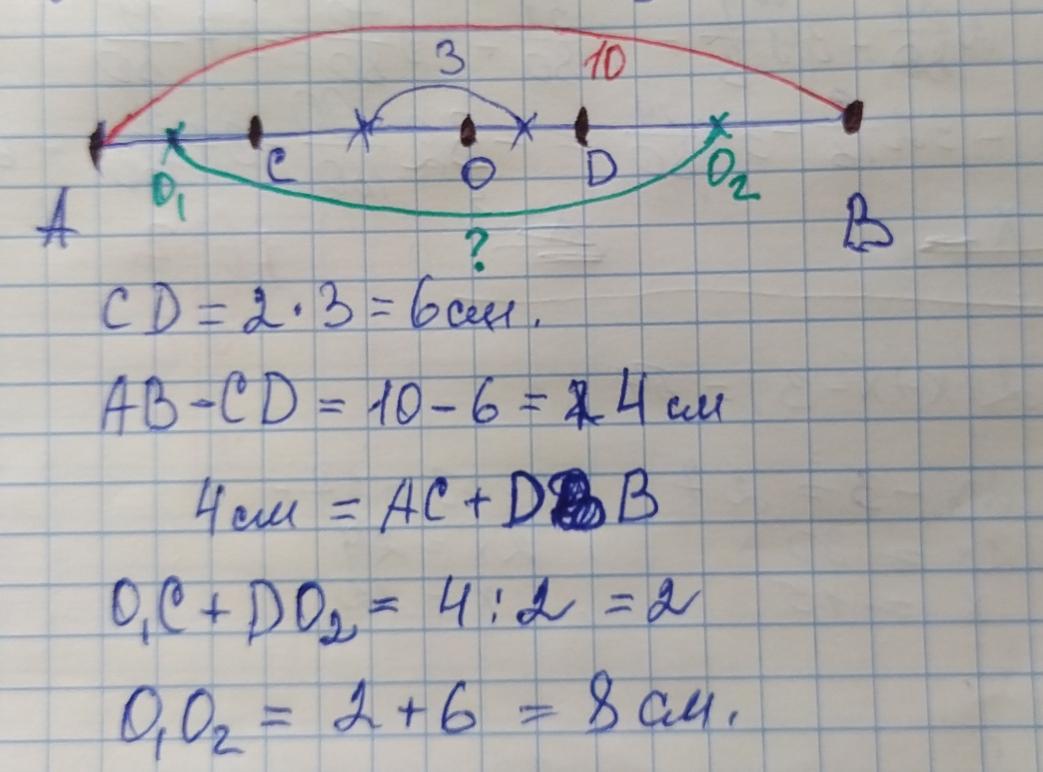 3 10
A O₁ C O D O₂ B
?
CD = 2 · 3 = 6 см.
AB - CD = 10 - 6 = 4 см
4 см = AC + DB
O₁C + DO₂ = 4 : 2 = 2
O₁O₂ = 2 + 6 = 8 см.